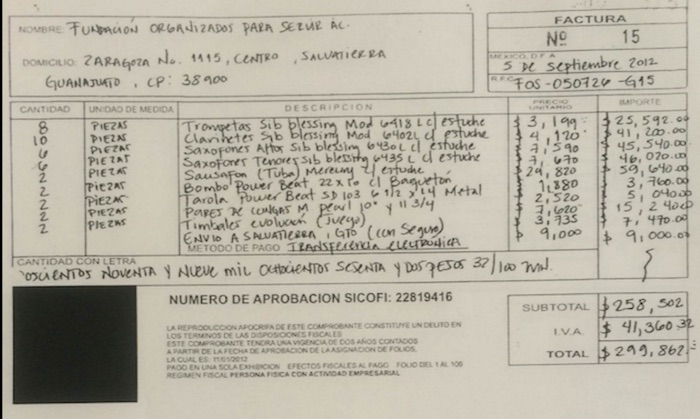 NOMBRE: FUNDACIÓN ORGANIZADOS PARA SERVIR AC.
DOMICILIO: ZARAGOZA No. 1115, CENTRO, SALVATIERRA
GUANAJUATO, CP: 38900
FACTURA
Nº 15
MEXICO, D.F. A
5 DE septiembre 2012
R.F.C.
FOS-050726-G15
CANTIDAD UNIDAD DE MEDIDA DESCRIPCION PRECIO UNITARIO IMPORTE
8 PIEZAS Trompetas Sib blessing Mod 6418 L c/ estuche $ 3,199 $ 25,592.00
10 PIEZAS Clarinetes Sib blessing Mod 6402L c/ estuche $ 4,120 $ 41,200.00
6 PIEZAS Saxofones Altos Sib blessing 6430L c/ estuche $ 7,590 $ 45,540.00
6 PIEZAS Saxofones Tenores Sib blessing 6435 L c/ estuche $ 7,670 $ 46,020.00
2 PIEZAS Sausafon (Tuba) Mercury c/ estuche $ 29,820 $ 59,640.00
2 PIEZAS Bombo Power Beat 22 x 10 c/ Baquetón 1,880 $ 3,760.00
2 PIEZAS Tarola Power Beat SD 103 6 1/2 x 14 Metal $ 2,520 $ 5,040.00
2 PIEZAS PARES DE CONGAS M pearl 10" y 11 3/4 $ 7,620 $ 15,240.00
2 PIEZAS Timbales evolución (Juego) $ 3,735 $ 7,470.00
ENVIO A SALVATIERRA, GTO (con Seguro) $ 9,000 $ 9,000.00
METODO DE PAGO TRANSFERENCIA electrónica
CANTIDAD CON LETRA
OSCIENTOS NOVENTA Y NUEVE MIL OCHOCIENTOS SESENTA Y DOS PESOS 32/100 MN.
NUMERO DE APROBACION SICOFI: 22819416
LA REPRODUCCION APOCRIFA DE ESTE COMPROBANTE CONSTITUYE UN DELITO EN
LOS TERMINOS DE LAS DISPOSICIONES FISCALES
ESTE COMPROBANTE TENDRA UNA VIGENCIA DE DOS AÑOS CONTADOS
A PARTIR DE LA FECHA DE APROBACION DE LA ASIGNACION DE FOLIOS,
LA CUAL ES: 11/01/2012
PAGO EN UNA SOLA EXHIBICION EFECTOS FISCALES AL PAGO FOLIO DEL 1 AL 100
REGIMEN FISCAL PERSONA FISICA CON ACTIVIDAD EMPRESARIAL
SUBTOTAL $ 258,502
I.V.A. $ 41,360.32
TOTAL $ 299,862.